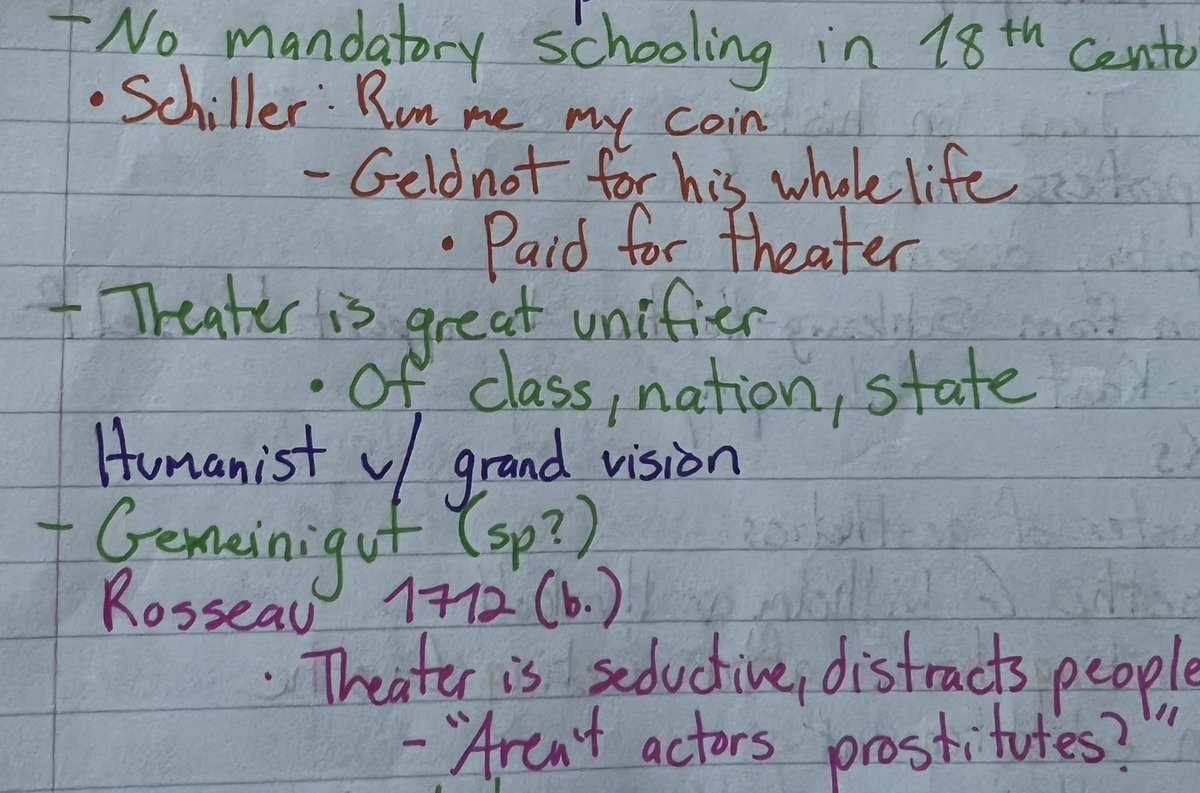 - No mandatory schooling in 18th centu
• Schiller: Run me my coin
- Geldnot for his whole life
• Paid for theater
- Theater is great unifier
• Of class, nation, state
Humanist w/ grand vision
- Gemeinigut (sp?)
Rosseau 1712 (b.)
• Theater is seductive, distracts people
- "Aren't actors prostitutes?"